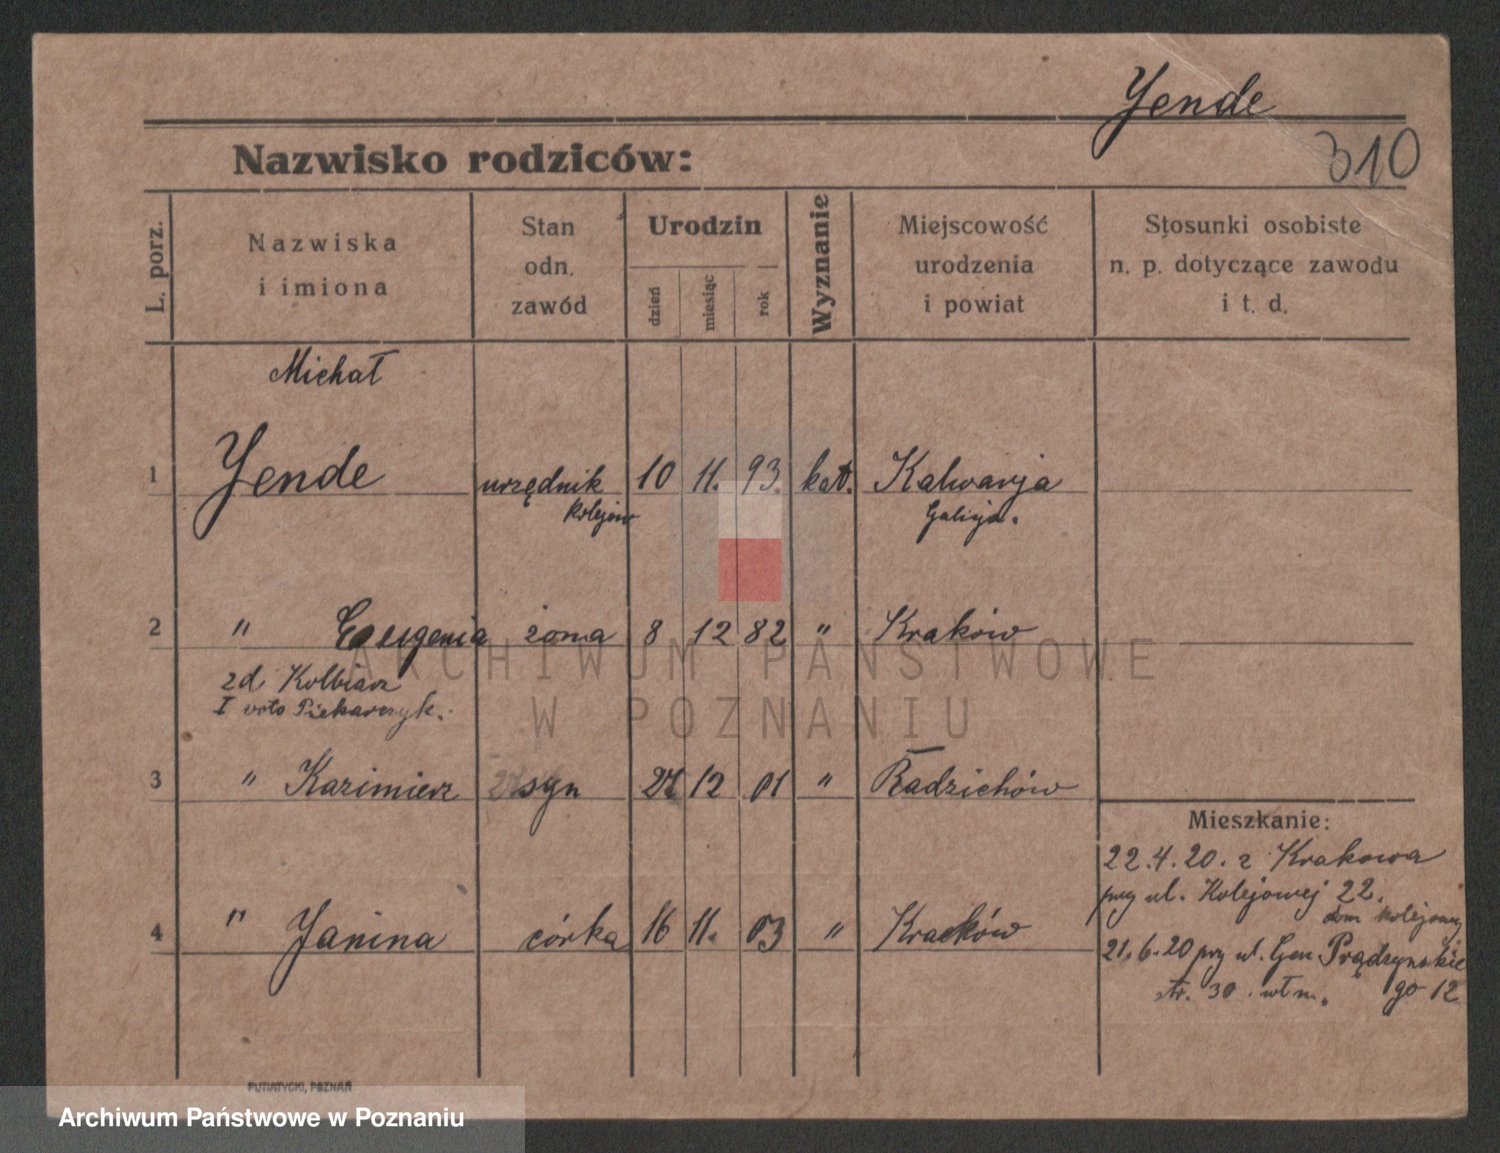 Yende
310
Nazwisko rodziców:
L. porz.
Nazwiska
i imiona
Stan
odn.
zawód
Urodzin
dzień
miesiąc
rok
Wyznanie
Miejscowość
urodzenia
i powiat
Stosunki osobiste
n. p. dotyczące zawodu
i t. d.
Michał
1 Yende urzędnik 10 11. 93. kat. Kalwarja
kolejow Galicja.
2 " Eugenia żona 8 12 82 " Kraków
zd. Kolbiarz
I voto Piekarczyk.
3 " Kazimierz syn 24 12 01 " Radzichów
Mieszkanie:
22.4.20. z Krakowa
przy ul. Kolejowej 22.
dom kolejowy
4 " Janina córka 16 11. 03 " Kraków
21.6.20 przy ul. Gen. Prądzyńskie
go 12
str. 30. wł m.
PUTIATYCKI, POZNAŃ
ARCHIWUM PAŃSTWOWE
W POZNANIU
Archiwum Państwowe w Poznaniu